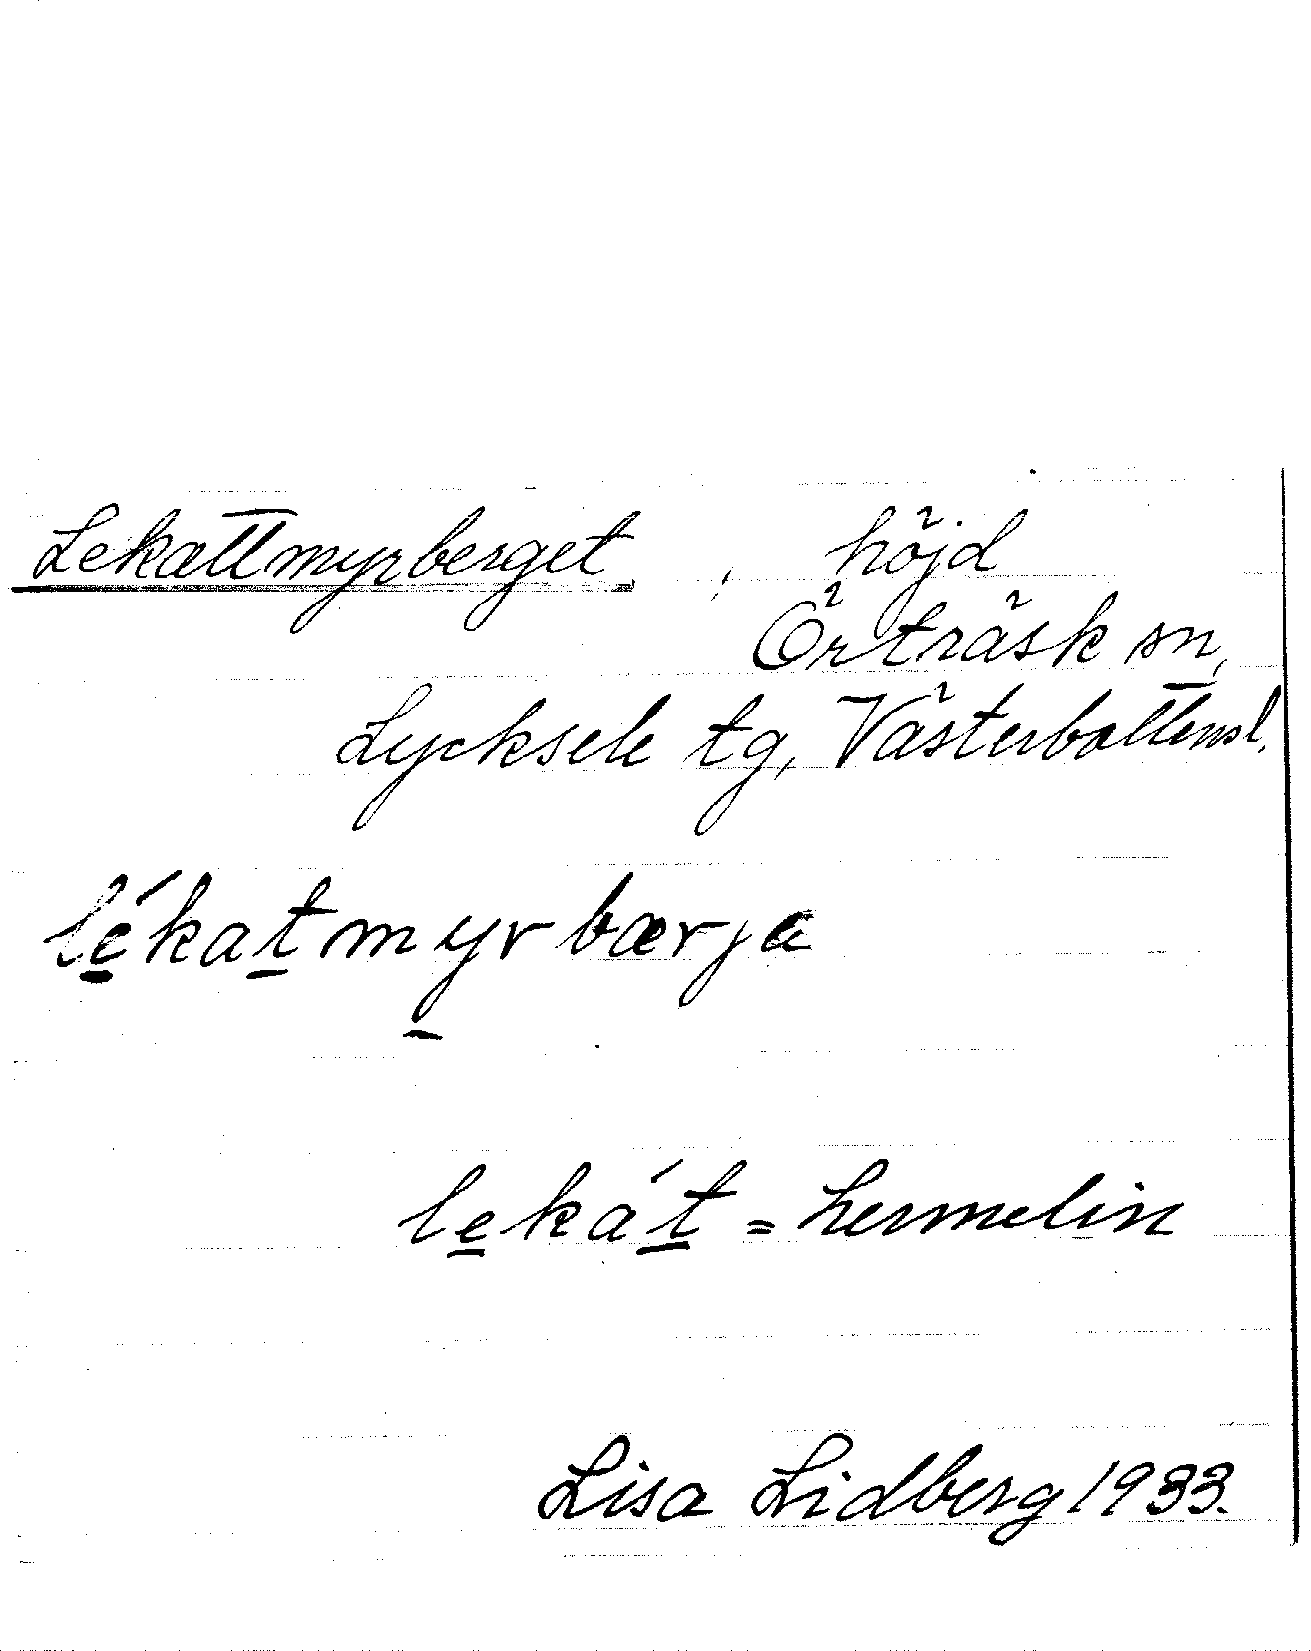 Lekattmyrberget, höjd
Örträsk sn,
Lycksele tg, Västerbottensl.
lé̱kat̠my̠rbærjɐ
le̠kát̠ = hermelin
Lisa Lidberg 1933.